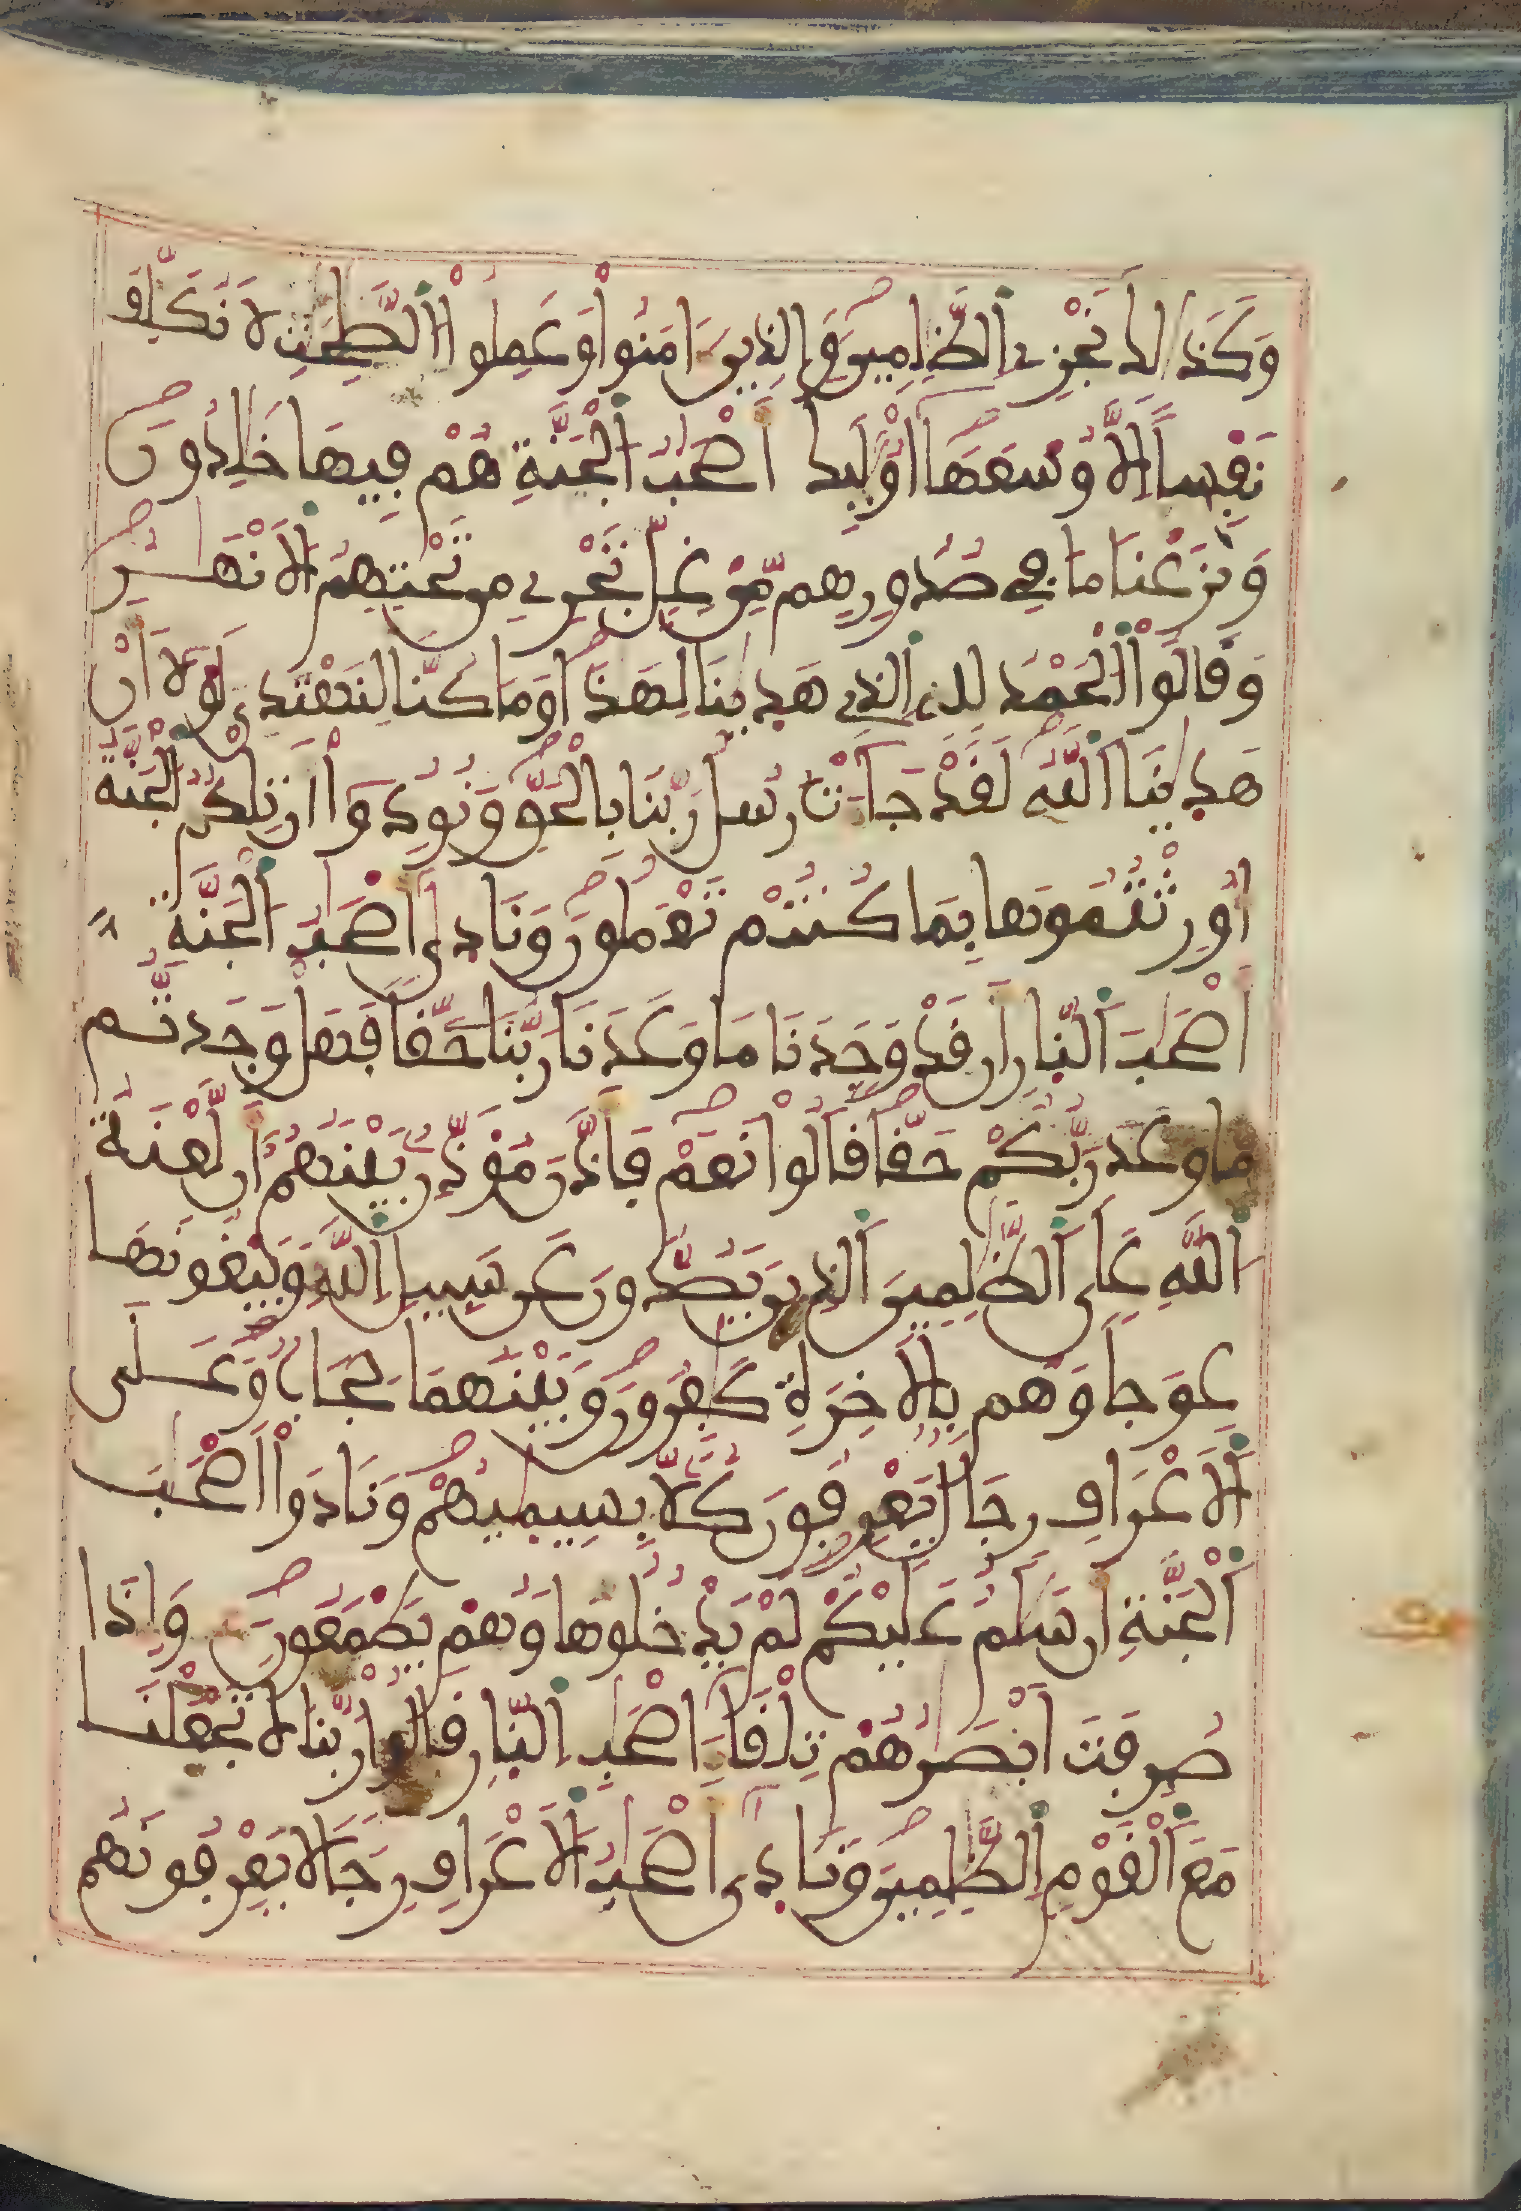 وَكَذَٰلِكَ نَجْزِے اِ۬لظَّٰلِمِينَ وَالذِينَ ءَامَنُواْ وَعَمِلُواْ اُ۬لصَّٰلِحَٰتِ لَا نُكَلِّفُ
نَفْساً اِلَّا وُسْعَهَا أُوْلَٰٓئِكَ أَصْحَٰبُ اُ۬لْجَنَّةِ هُمْ فِيهَا خَٰلِدُونَ
وَنَزَعْنَا مَا فِے صُدُورِهِم مِّنْ غِلٍّ تَجْرِے مِن تَحْتِهِمُ اُ۬لَانْهَٰرُ
وَقَالُواْ اُ۬لْحَمْدُ لِلهِ اِ۬لذِے هَدَىٰنَا لِهَٰذَا وَمَا كُنَّا لِنَهْتَدِىَ لَوْلَا أَنْ
هَدَىٰنَا اَ۬للَّهُ لَقَدْ جَآءَتْ رُسُلُ رَبِّنَا بِالْحَقِّ وَنُودُوٓاْ أَن تِلْكُمُ اُ۬لْجَنَّةُ
أُورِثْتُمُوهَا بِمَا كُنتُمْ تَعْمَلُونَ وَنَادَىٰٓ أَصْحَٰبُ اُ۬لْجَنَّةِ
أَصْحَٰبَ اَ۬لنَّارِ أَن قَدْ وَجَدْنَا مَا وَعَدَنَا رَبُّنَا حَقّاً فَهَلْ وَجَدتُّم
مَّا وَعَدَ رَبُّكُمْ حَقّاً قَالُواْ نَعَمْ فَأَذَّنَ مُؤَذِّنٌ بَيْنَهُمُ أَن لَّعْنَةُ
اُ۬للَّهِ عَلَى اَ۬لظَّٰلِمِينَ اَ۬لذِينَ يَصُدُّونَ عَن سَبِيلِ اِ۬للَّهِ وَيَبْغُونَهَا
عِوَجاً وَهُم بِالَاخِرَةِ كَٰفِرُونَ وَبَيْنَهُمَا حِجَابٌ وَعَلَى
اَ۬لَاعْرَافِ رِجَالٌ يَعْرِفُونَ كُلّاً بِسِيمَىٰهُمْ وَنَادَوَاْ اَصْحَٰبَ
اَ۬لْجَنَّةِ أَن سَلَٰمٌ عَلَيْكُمْ لَمْ يَدْخُلُوهَا وَهُمْ يَطْمَعُونَ وَإِذَا
صُرِفَتَ اَبْصَٰرُهُمْ تِلْقَآءَ اَصْحَٰبِ اِ۬لنَّارِ قَالُواْ رَبَّنَا لَا تَجْعَلْنَا
مَعَ اَ۬لْقَوْمِ اِ۬لظَّٰلِمِينَ وَنَادَىٰٓ أَصْحَٰبُ اُ۬لَاعْرَافِ رِجَالاً يَعْرِفُونَهُم